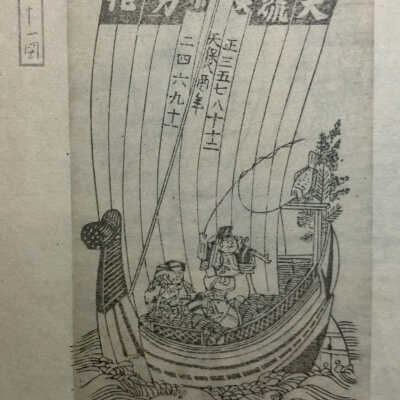 正三五七八十十二
天保八酉年
二四六九十一
十一図